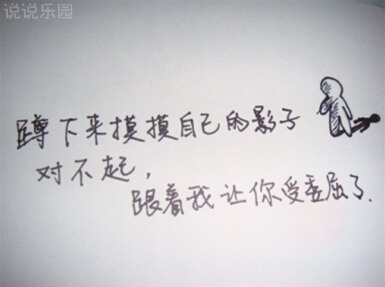 说说乐园
蹲下来摸摸自己的影子
对不起，
跟着我让你受委屈了.